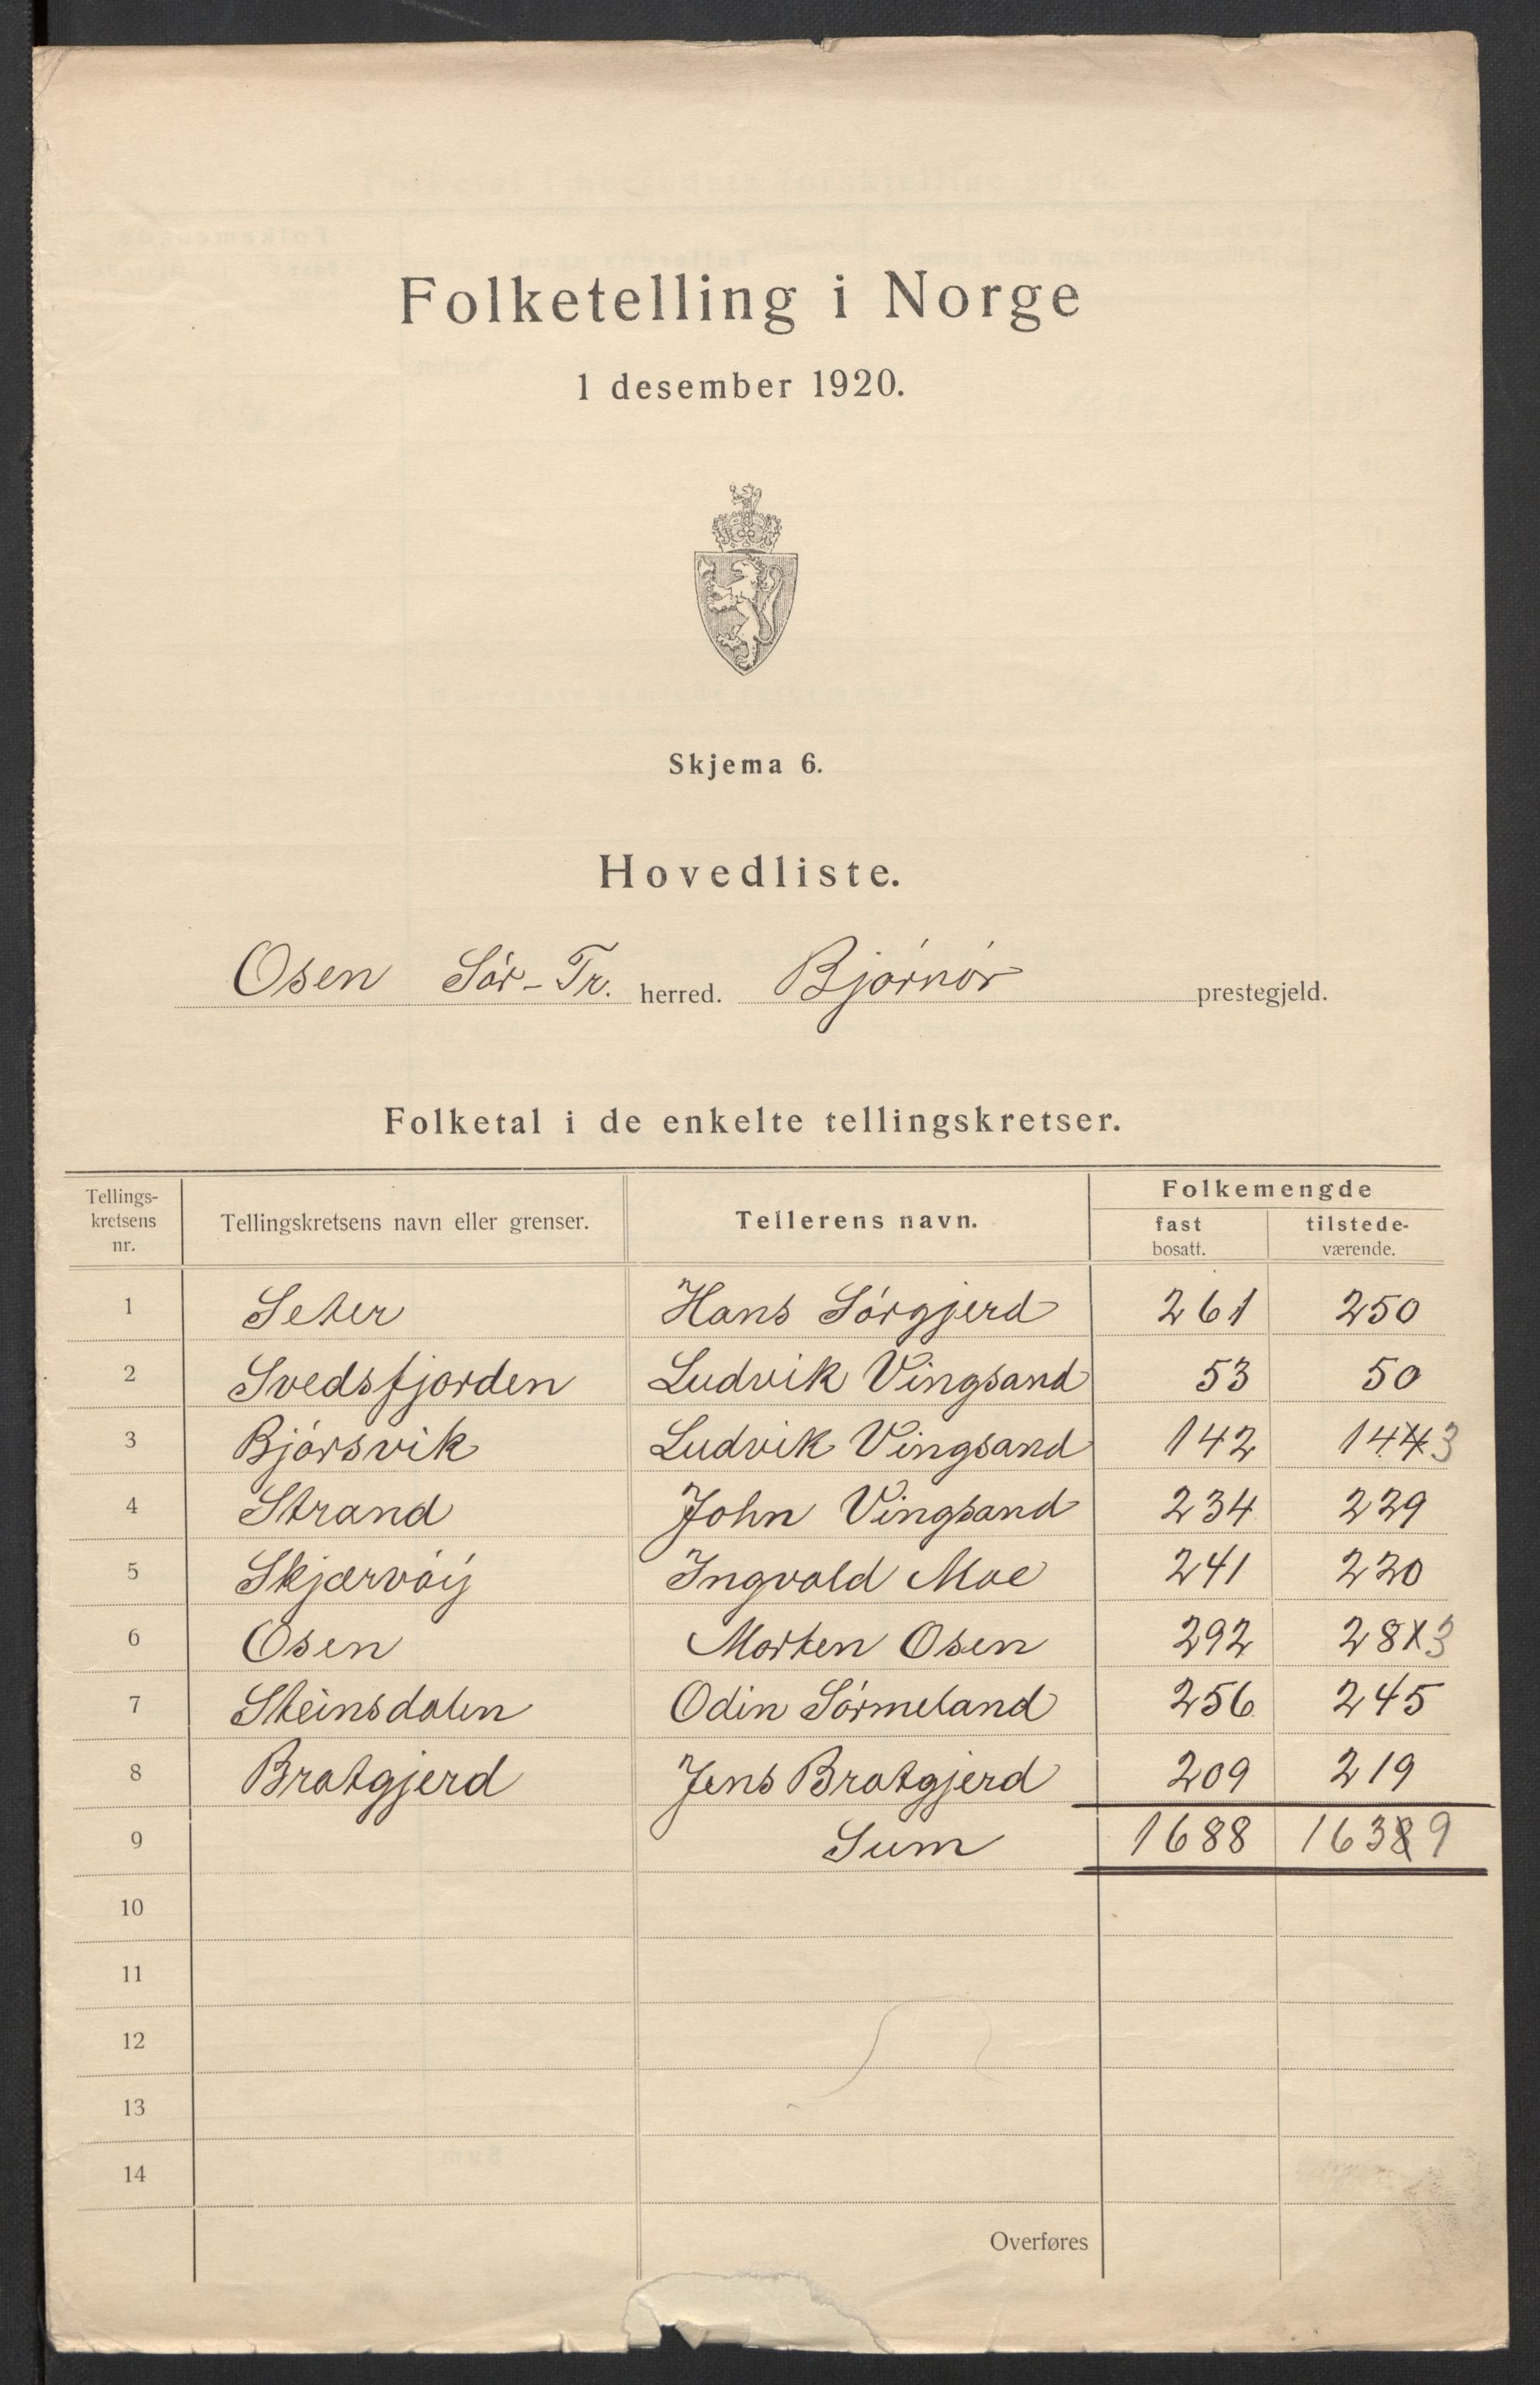 Folketelling i Norge
1 desember 1920.
Skjema 6.
Hovedliste.
Osen Sór-Tr. herred. Bjórnór prestegjeld.
Folketal i de enkelte tellingskretser.
Tellings-kretsens nr. Tellingskretsens navn eller grenser. Tellerens navn. Folkemengde fast bosatt. tilstede-værende.
1 Seter Hans Sórgjerd 261 250
2 Svedsfjorden Ludvik Vingsand 53 50
3 Bjórsvik Ludvik Vingsand 142 144 3
4 Strand John Vingsand 234 229
5 Skjærvöy Ingvald Moe 241 220
6 Osen Morten Osen 292 281 3
7 Steinsdalen Odin Sórmeland 256 245
8 Bratgjerd Jens Bratgjerd 209 219
9 Sum 1688 1638 9
10
11
12
13
14
Overføres